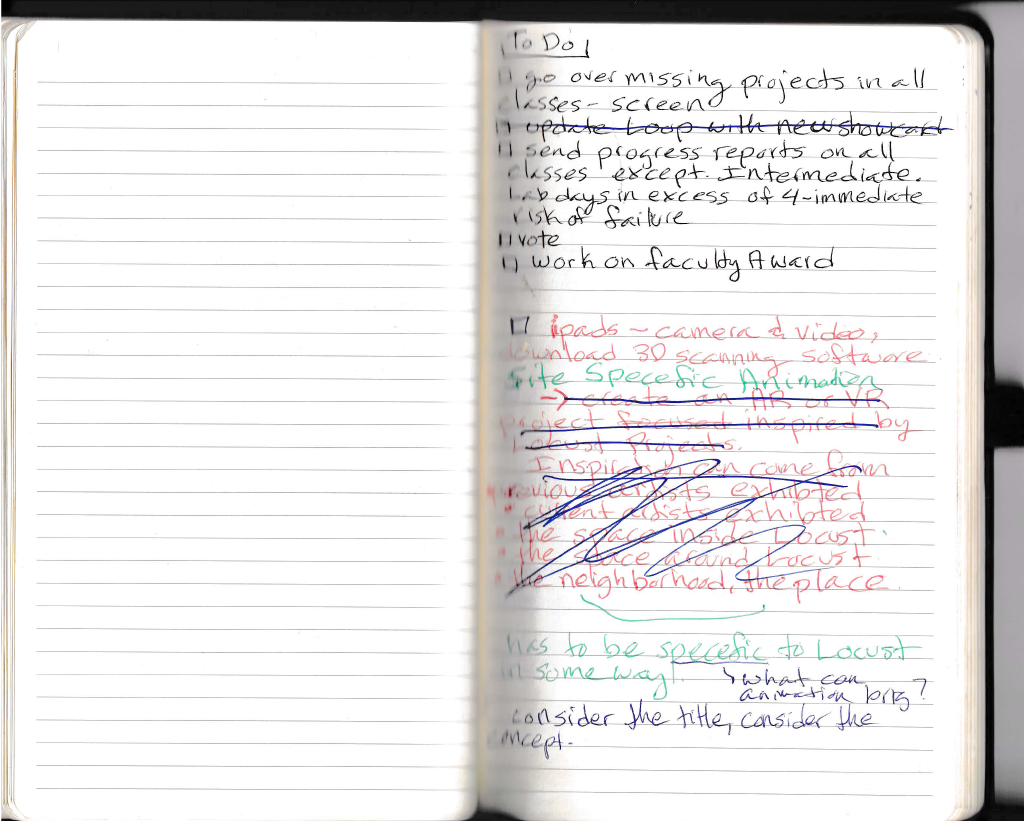 To Do
[] go over missing projects in all
classes - screen
[] update Loop with new showcard
[] send progress reports on all
classes except Intermediate.
Lab days in excess of 4 - immediate
risk of failure
[] vote
[] work on faculty Award
[] ipads - camera & video,
download 3D scanning software
Site Specefic Animation
-> create an AR or VR
project focused inspired by
Locust Projects.
Inspiration can come from
• previous artists exhibted
• current artists exhibted
• the space inside Locust
• the space around Locust
• the neighborhood, the place.
has to be specefic to Locust
in some way!
↳ what can
animation bring?
consider the title, consider the
concept.